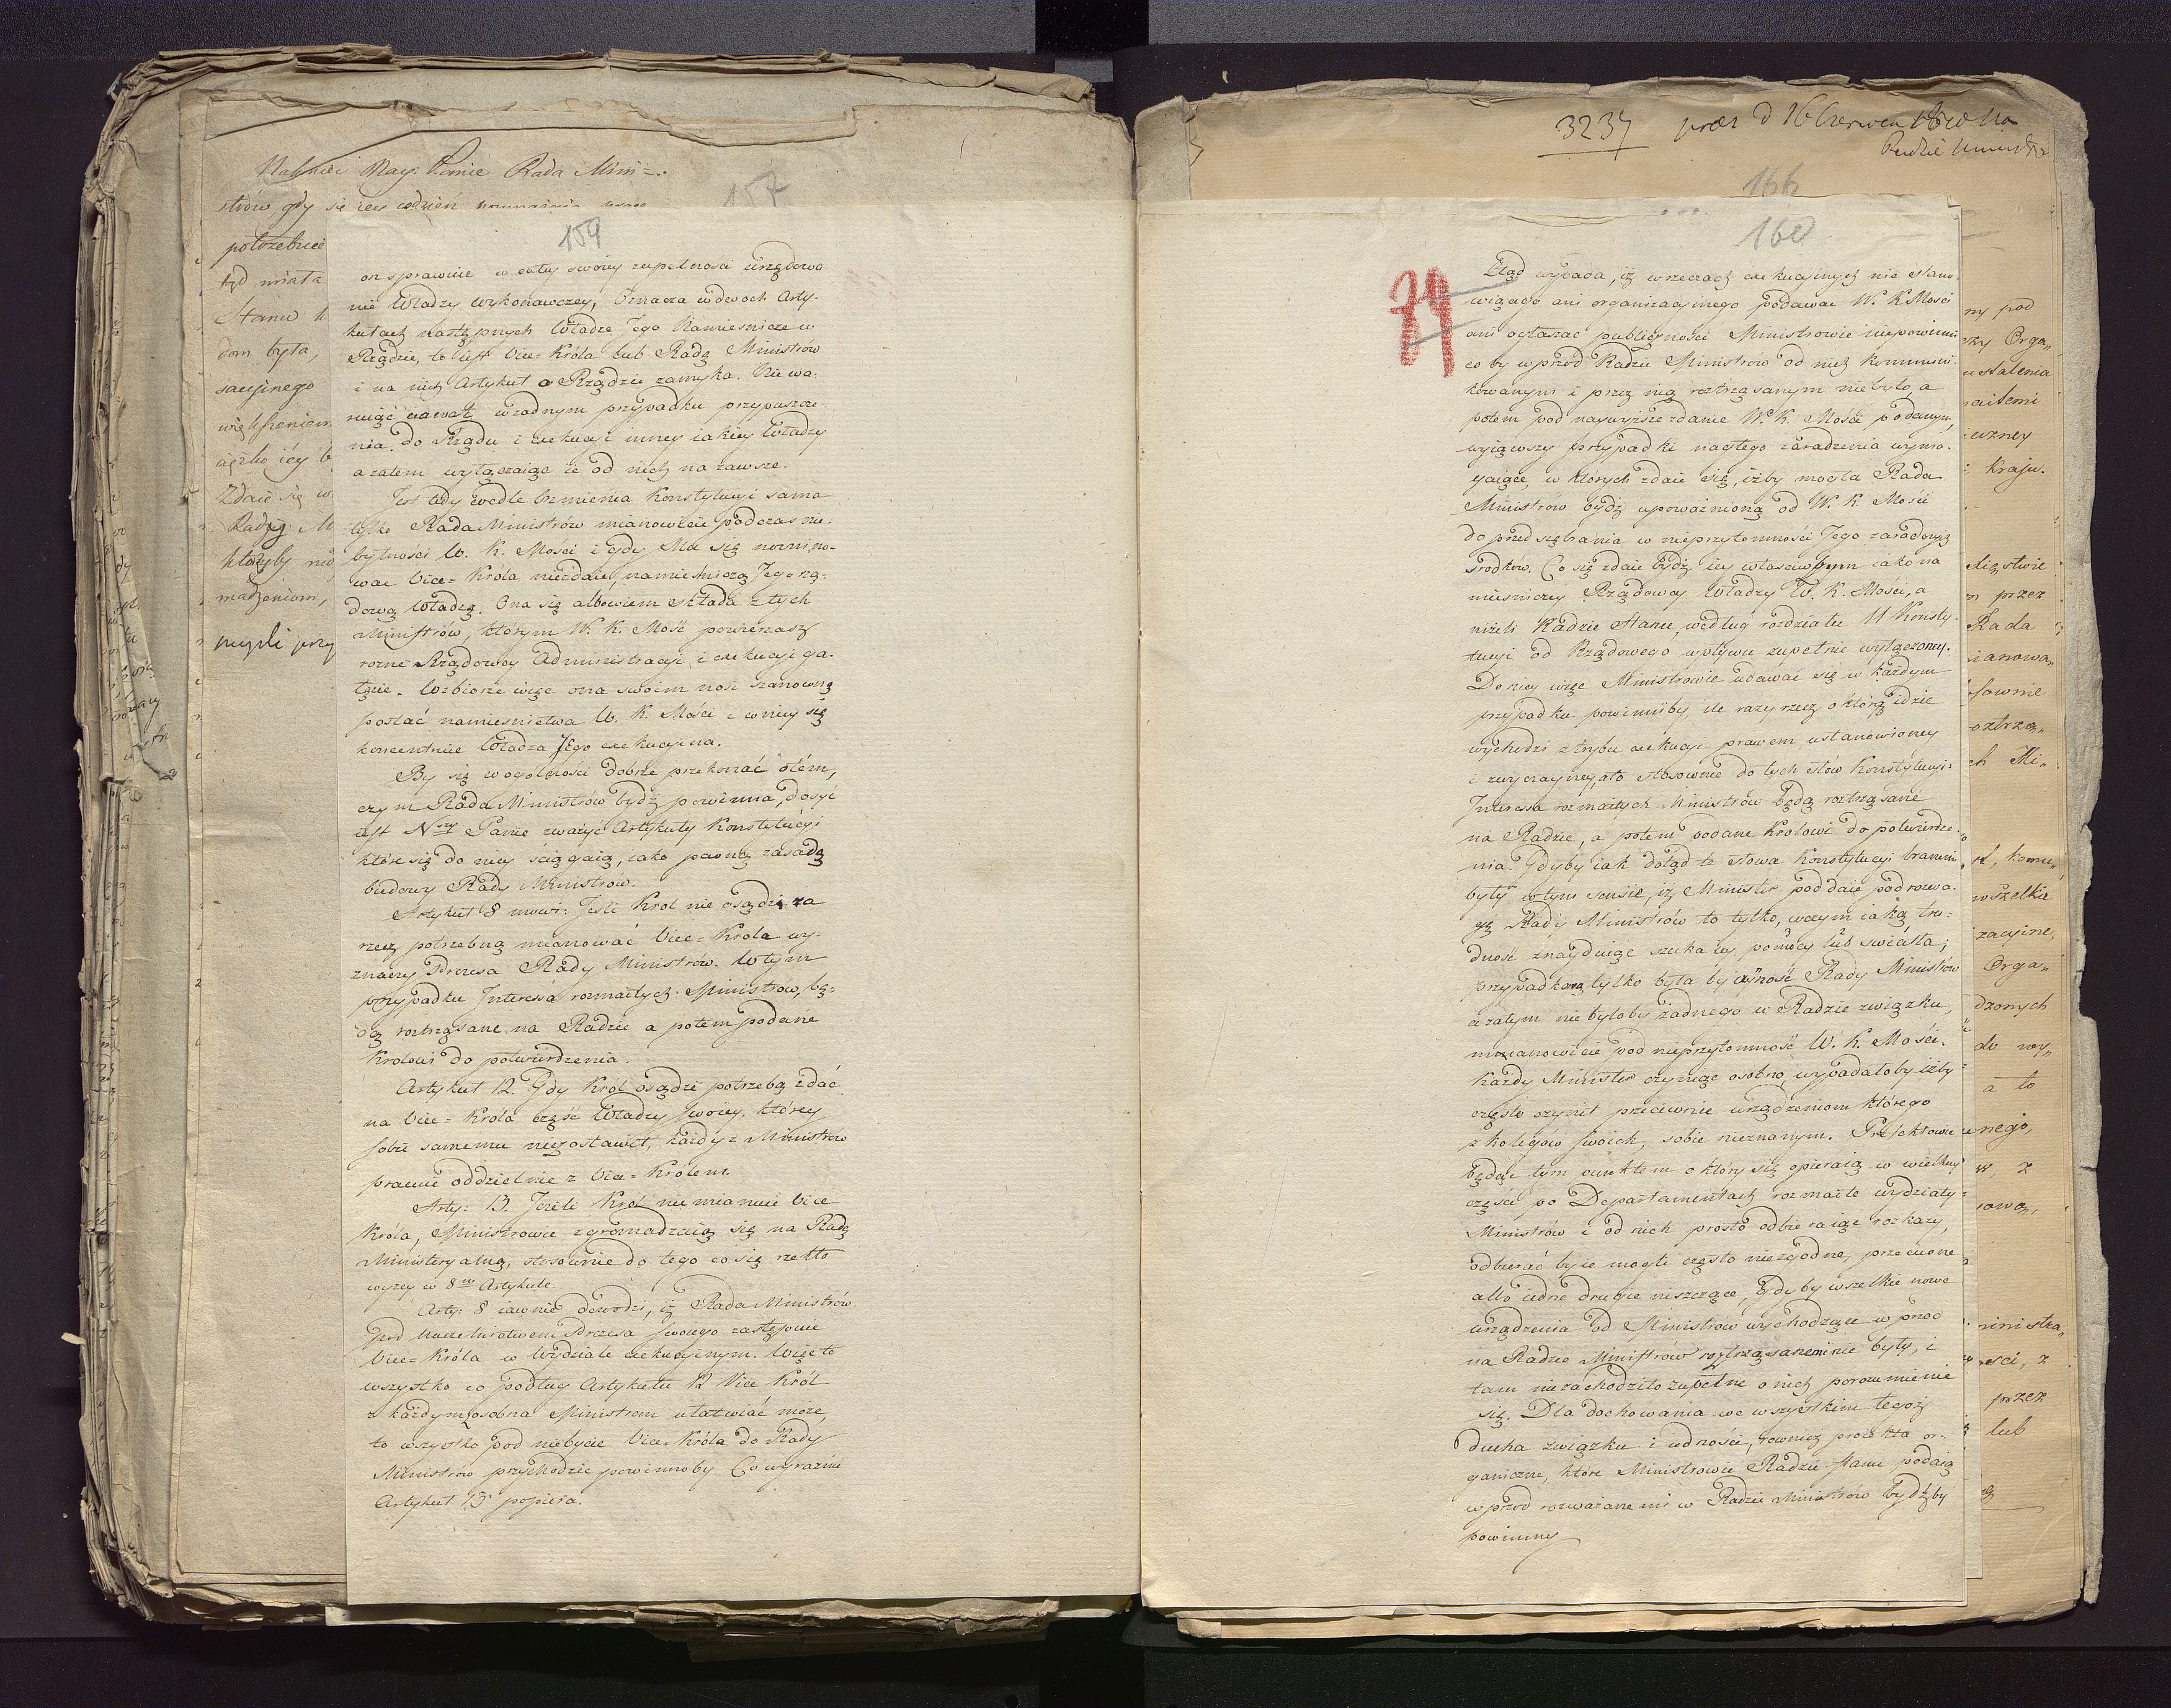 Nayiaś: Panie Rada Mini=
strów, gdy się
157
potrzebuie
tyd miała
Stanu
dom była,
sacyinego
większeniem
Zdaie się w
Radzę M
któryby nie
madzeniom,
myśli przy
159
on sprawuie w całey swoiey zupełności Urzędowa
nie Władzy wykonawczey, Oznacza w dwoch Arty-
kułach następnych Władze Jego Namiesnicze w
Rządzie, to iest Vice=Króla lub Radą Ministrów
i na nich Artykuł o Rządzie zamyka. Nie wa-
ruiąc nawet w żadnym przypadku przypuszcze-
nia do Rządu i exekucyi inney iakiey Władzy
a zatem wyłączaiąc ie od nich na zawsze.
Jest tedy wedle brzmienia Konstytucyi sama
tylko Rada Ministrów mianowicie podczas nie-
bytności W. K. Mości i gdy Mu się nominno-
wac Vice=Króla niezdaie, namiesniczą Jego rzą-
dową Władzą. Ona się albowiem składa z tych
Ministrów, którym W. K. Mość powierzasz
rozne Rządowey Administracyi i exekucyi ga-
łęzie. W zbiorze więc ona swoim nosi szanowną
postać namiesnictwa W. K. Mości i w niey się
koncentruie Władza Jego exekucyina.
By się w ogólności dobrze przekonać o tém,
czym Rada Ministrów bydź powinna, dosyć
iest Nay: Panie zważyć Artykuły Konstytucyi
które się do niey ściągaią, iako pewną zasadę
budowy Rady Ministrów.
Artykuł 8 mowi: Jeśli Krol nie osądzi za
rzecz potrzebną mianować Vice=Krola wy-
znaczy Prezesa Rady Ministrów. W tym
przypadku Interessa rozmaitych Ministrów, bę=
dą roztrząsane na Radzie a potem podane
Krolowi do potwierdzenia.
Artykuł 12. Gdy Król osądzi potrzebą zdać
na Vice=Krola część Władzy swoiey, którey
sobie samemu niezostawił, każdy z Ministrów
pracuie oddzielnie z Vice=Królem.
Arty: 13. Jeżeli Krol nie mianuie Vice
Króla, Ministrowie zgromadzaią się na Radę
Ministeryalną, stosownie do tego co się rzekło
wyżey w 8ᵐ Artykule.
Arty: 8 iawnie dowodzi, iż Rada Ministrów
pod Naczelnictwem Prezesa swoiego zastępuie
Vice=Króla w Wydziale exekucyinym. Więc to
wszystko co podług Artykułu 12 Vice Król
z każdym z osobna Ministrem ułatwiać może,
to wszystko pod niebycie Vice=Króla do Rady
Ministrów przychodzić powinnoby. Co wyraznie
Artykuł 13 popiera.
3237 prez d 16 Czerwca 1810 na
Radzie Ministrów
166
160
79
Ztąd wypada, iż w rzeczach exekucyinych nic stano-
wiącego ani organizacyinego podawać W. K Mości
ani ogłaszać publiczności Ministrowie niepowinni
co by wprzód Radzie Ministrów od nich kommuni-
kowanym i przez nią roztrząsanym niebyło, a
potem pod naywyższe zdanie W. K. Mości podanym,
wyiąwszy przypadki nagłego zaradzenia wyma-
gaiące, w których zdaie się, iżby mogła Rada
Ministrów bydź upoważnioną od W. K. Mości
do przedsiębrania w nieprzytomności Jego zaradczych
środków. Co się zdaie bydź iey właściwszym iako na
miesniczey Rządowey Władzy W. K. Mości, a
niżeli Radzie Stanu, według rozdziału 11 Konsty-
tucyi od Rządowego wpływu zupełnie wyłączoney.
Do niey więc Ministrowie udawać się w każdym
przypadku powinniby, ile razy rzecz o którą idzie
wychodzi z trybu exekucyi prawem ustanowioney
i zwyczayney, a to stosownie do tych słów Konstytucyi:
Interessa rozmaitych Ministrów będą roztrząsane
na Radzie, a potem podane Krolowi do potwierdze-
nia. Gdyby iak dotąd te słowa Konstytucyi branemi
były w tym sensie, iż Minister poddaie pod rozwa-
gę Rady Ministrów to tylko, w czym iaką tru-
dność znayduiąc szuka iey pomocy lub swiatła;
przypadkową tylko byłaby czynność Rady Ministrów
a zatym niebyłoby żadnego w Radzie związku,
mianowicie pod nieprzytomność W. K. Mości.
Każdy Minister czyniąc osobno, wypadałoby iżby
często czynił przeciwnie urządzeniom którego
z kolegów swoich, sobie nieznanym. Prefektowie
będąc tym punktem o który się opieraią w wielkiey
części po Departamentach rozmaite wydziały
Ministrów i od nich prosto odbieraiąc rozkazy,
odbierać byie mogli często niezgodne, przeciwne
albo iedne drugie niszczące, gdyby wszelkie nowe
urządzenia od Ministrów wychodzące w przod
na Radzie Ministrow roztrząsanemi nie były, i
tam niezachodziło zupełne o nich porozumienie
się. Dla dochowania we wszystkim tegoż
ducha związku i iedności, rownież proiekta or-
ganiczne, które Ministrowie Radzie Stanu podaią
w przod rozważanemi w Radzie Ministrów bydźby
powinny
ny pod
Orga„
ustalenia
Kraju.
przez
Rada
ianowa„
sownie
oztrzą„
ch Mi„
wszelkie
zacyine,
Orga„
dzonych
do wy„
a to
nego,
ministra„
przez
lub